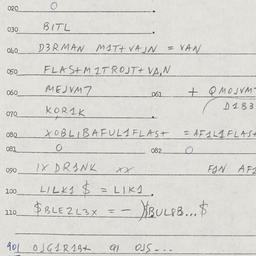 020 O
030 BITL
040 D3RMAN M1T+VAJN = VAN
050 FLAS+M1TROJT+VA,N
060 MEJVM7 061 + QMOJVM
070 KOR1K D1B3
080 XOBLIBAFUL1FLAS+ =AF1L1FLAS+
081 O 082 O
090 IX DR1NK XX F1N AF1
100 LILK1 $ = LIK1
110 $BLE2L3X = - BULPB...$
901 OJG1R19+ 91 OJS---